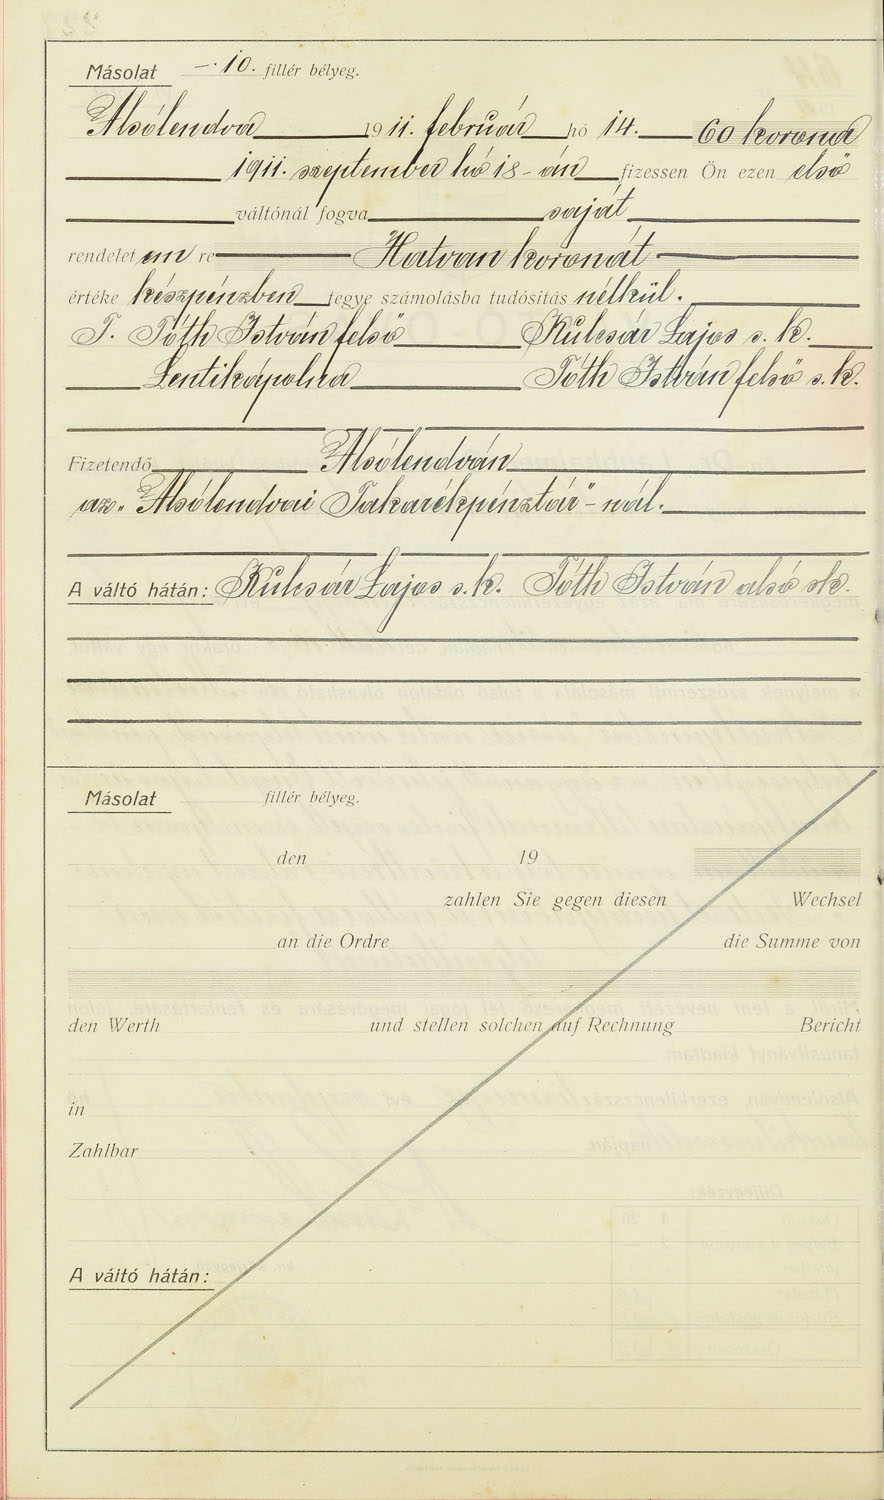 Másolat —·10. fillér bélyeg.
Alsólendva 1911. február hó 14. 60 korona
1911. szeptember hó 18-án fizessen Ön ezen első
váltónál fogva saját
rendeletem re Hatvan koronát
értéke készpénzben tegye számolásba tudósitás nélkül.
T. Tóth István felső Kulcsár Lajos s. k.
Lentikápolna Tóth István felső s. k.
Fizetendő Alsólendván
az „Alsólendvai Takarékpénztár"-nál.
A váltó hátán: Kulcsár Lajos s. k. Tóth István alsó sk.
Másolat fillér bélyeg.
den 19
zahlen Sie gegen diesen Wechsel
an die Ordre die Summe von
den Werth und stellen solchen auf Rechnung Bericht
in
Zahlbar
A váltó hátán: